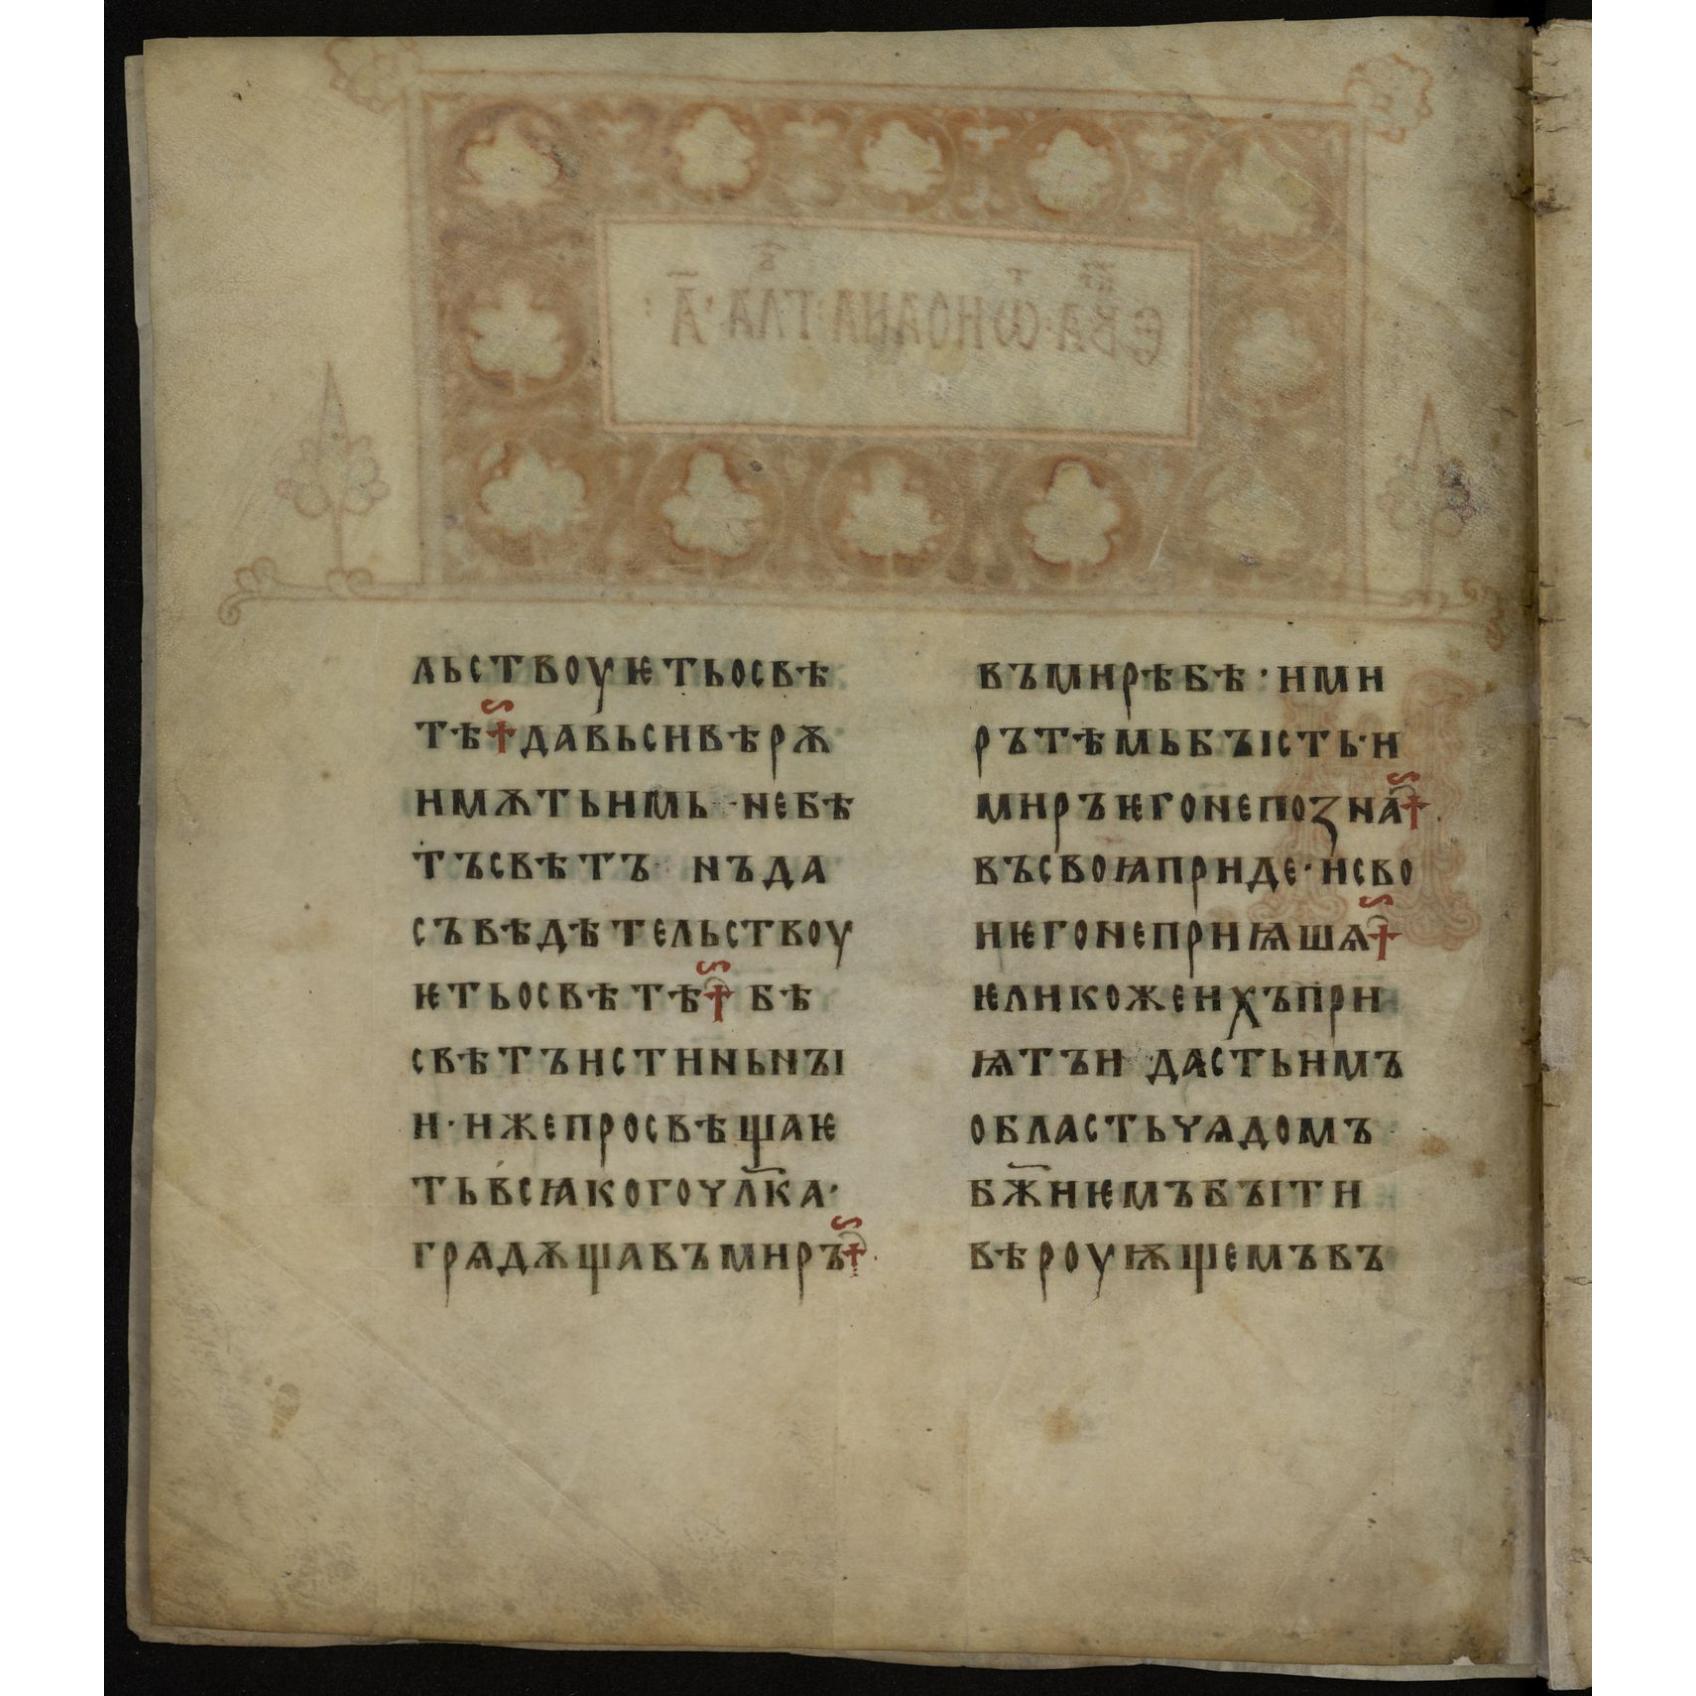 льствоуѥтьосвѣ
тѣ†давьсивѣрѫ
имѫтьимь·небѣ
тъсвѣтъ нъда
съвѣдѣтельствоу
ѥтьосвѣтѣ† бѣ
свѣтъистиньнꙑ
и·ижепросвѣщаѥ
тьвсꙗкогочл҃ка·
грѧдѫщавъмиръ†
въмирѣбѣ·ими
рътѣмьбꙑсть·и
миръѥгонепозна†
въсвоꙗприде·исво
иѥгонеприꙗшѧ†
ѥликожеихъпри
ѩтъи дастьимъ
областьчѧдомъ
бж҃иѥмъбꙑти
вѣроуѭщемъвъ